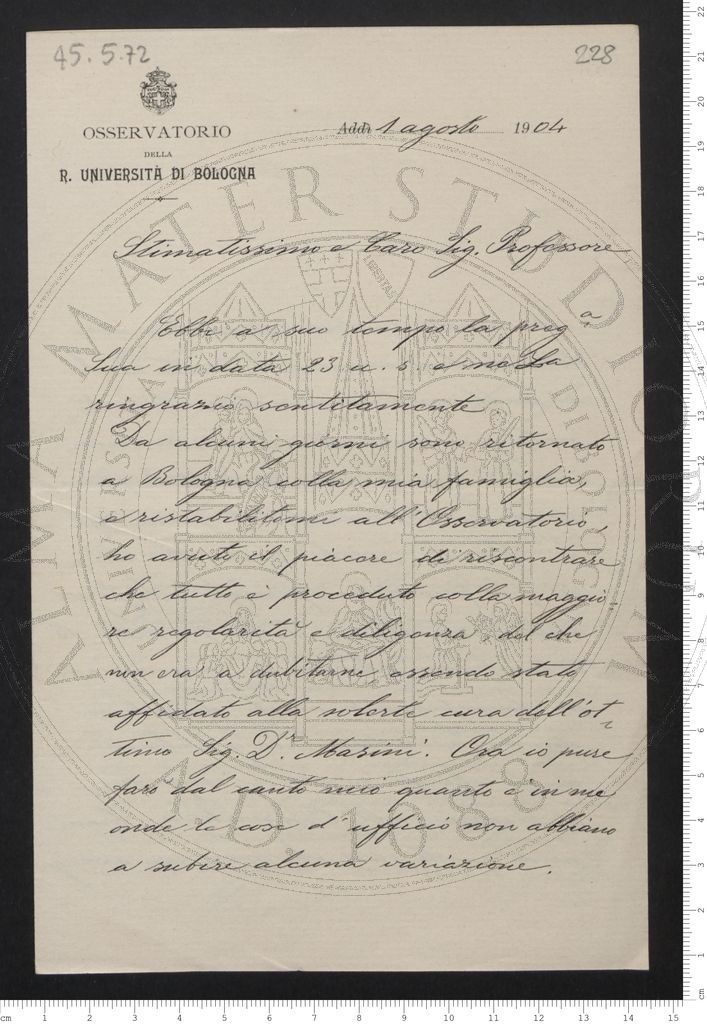 45.5.72
228
OSSERVATORIO
DELLA
R. UNIVERSITÀ DI BOLOGNA
Addì 1 agosto 1904
Stimatissimo e Caro Sig. Professore
Ebbi a suo tempo la preg.a
Sua in data 23 u. s. e ne La
ringrazio sentitamente
Da alcuni giorni sono ritornato
a Bologna colla mia famiglia,
e ristabilitomi all'Osservatorio,
ho avuto il piacere di riscontrare
che tutto è proceduto colla maggio-
re regolarità e diligenza, del che
non era a dubitarne, essendo stato
affidato alla solerte cura dell'ot-
timo Sig. Dr. Masini. Ora io pure
farò dal canto mio quanto è in me
onde le cose d'ufficio non abbiano
a subire alcuna variazione.
ALMA MATER STUDIORUM
A.D. 1088